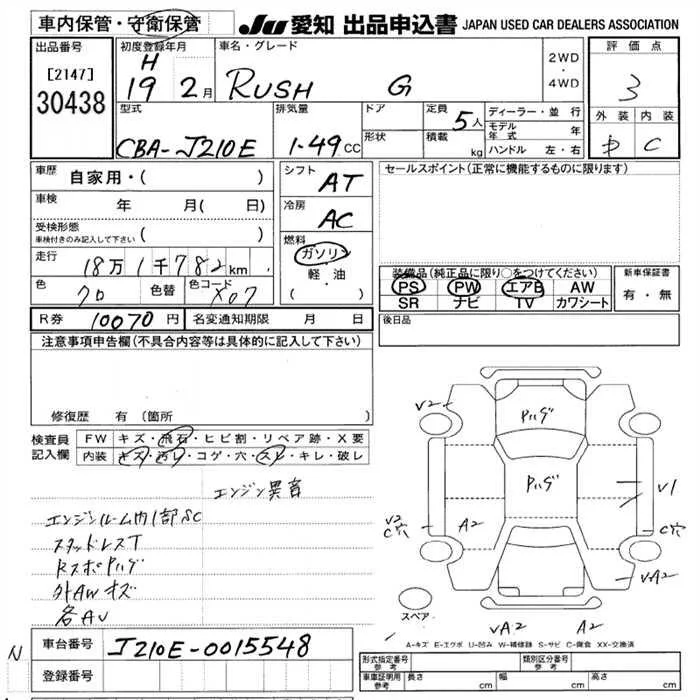 車内保管・守衛保管
JU 愛知 出品申込書 JAPAN USED CAR DEALERS ASSOCIATION
出品番号
[2147]
30438
初度登録年月
H
19 2月
車名・グレード
RUSH G
2WD
・
4WD
評価点
3
外装 内装
C
型式
CBA-J210E
排気量
1.49CC
ドア
形状
定員
5人
積載
kg
ディーラー・並行
モデル年式 年
ハンドル 左・右
車歴
自家用・( )
車検
年 月( 日)
受検形態
車検付きのみ記入して下さい ( )
走行
18万1千782km
色
クロ
色替
色コード
X07
シフト
AT
冷房
AC
燃料
ガソリン
・
軽油
( ・ )
セールスポイント(正常に機能するものに限ります)
装備品(純正品に限り○をつけてください)
PS PW エアB AW
SR ナビ TV カワシート
新車保証書
有・無
R券 10070円 名変通知期限 月 日
後日品
注意事項申告欄(不具合内容等は具体的に記入して下さい)
修復歴 有(箇所 )
検査員
記入欄
FW キズ・飛石・ヒビ割・リペア跡・X要
内装 キズ・汚レ・コゲ・穴・スレ・キレ・破レ
エンジン異音
エンジンルーム内1部SC
スタッドレスT
RスポPハゲ
外AWキズ
各AU
V2
Pハゲ
Pハゲ
V1
V2
C穴
A2
C穴
VA2
スペア
VA2
A2
A-キズ E-エクボ U-凹み W-補修跡 S-サビ C-腐食 XX-交換済
N
車台番号
J210E-0015548
登録番号
形式指定番号
参考
類別区分番号
参考
車庫証明用
参考
長さ cm
幅 cm
高さ cm